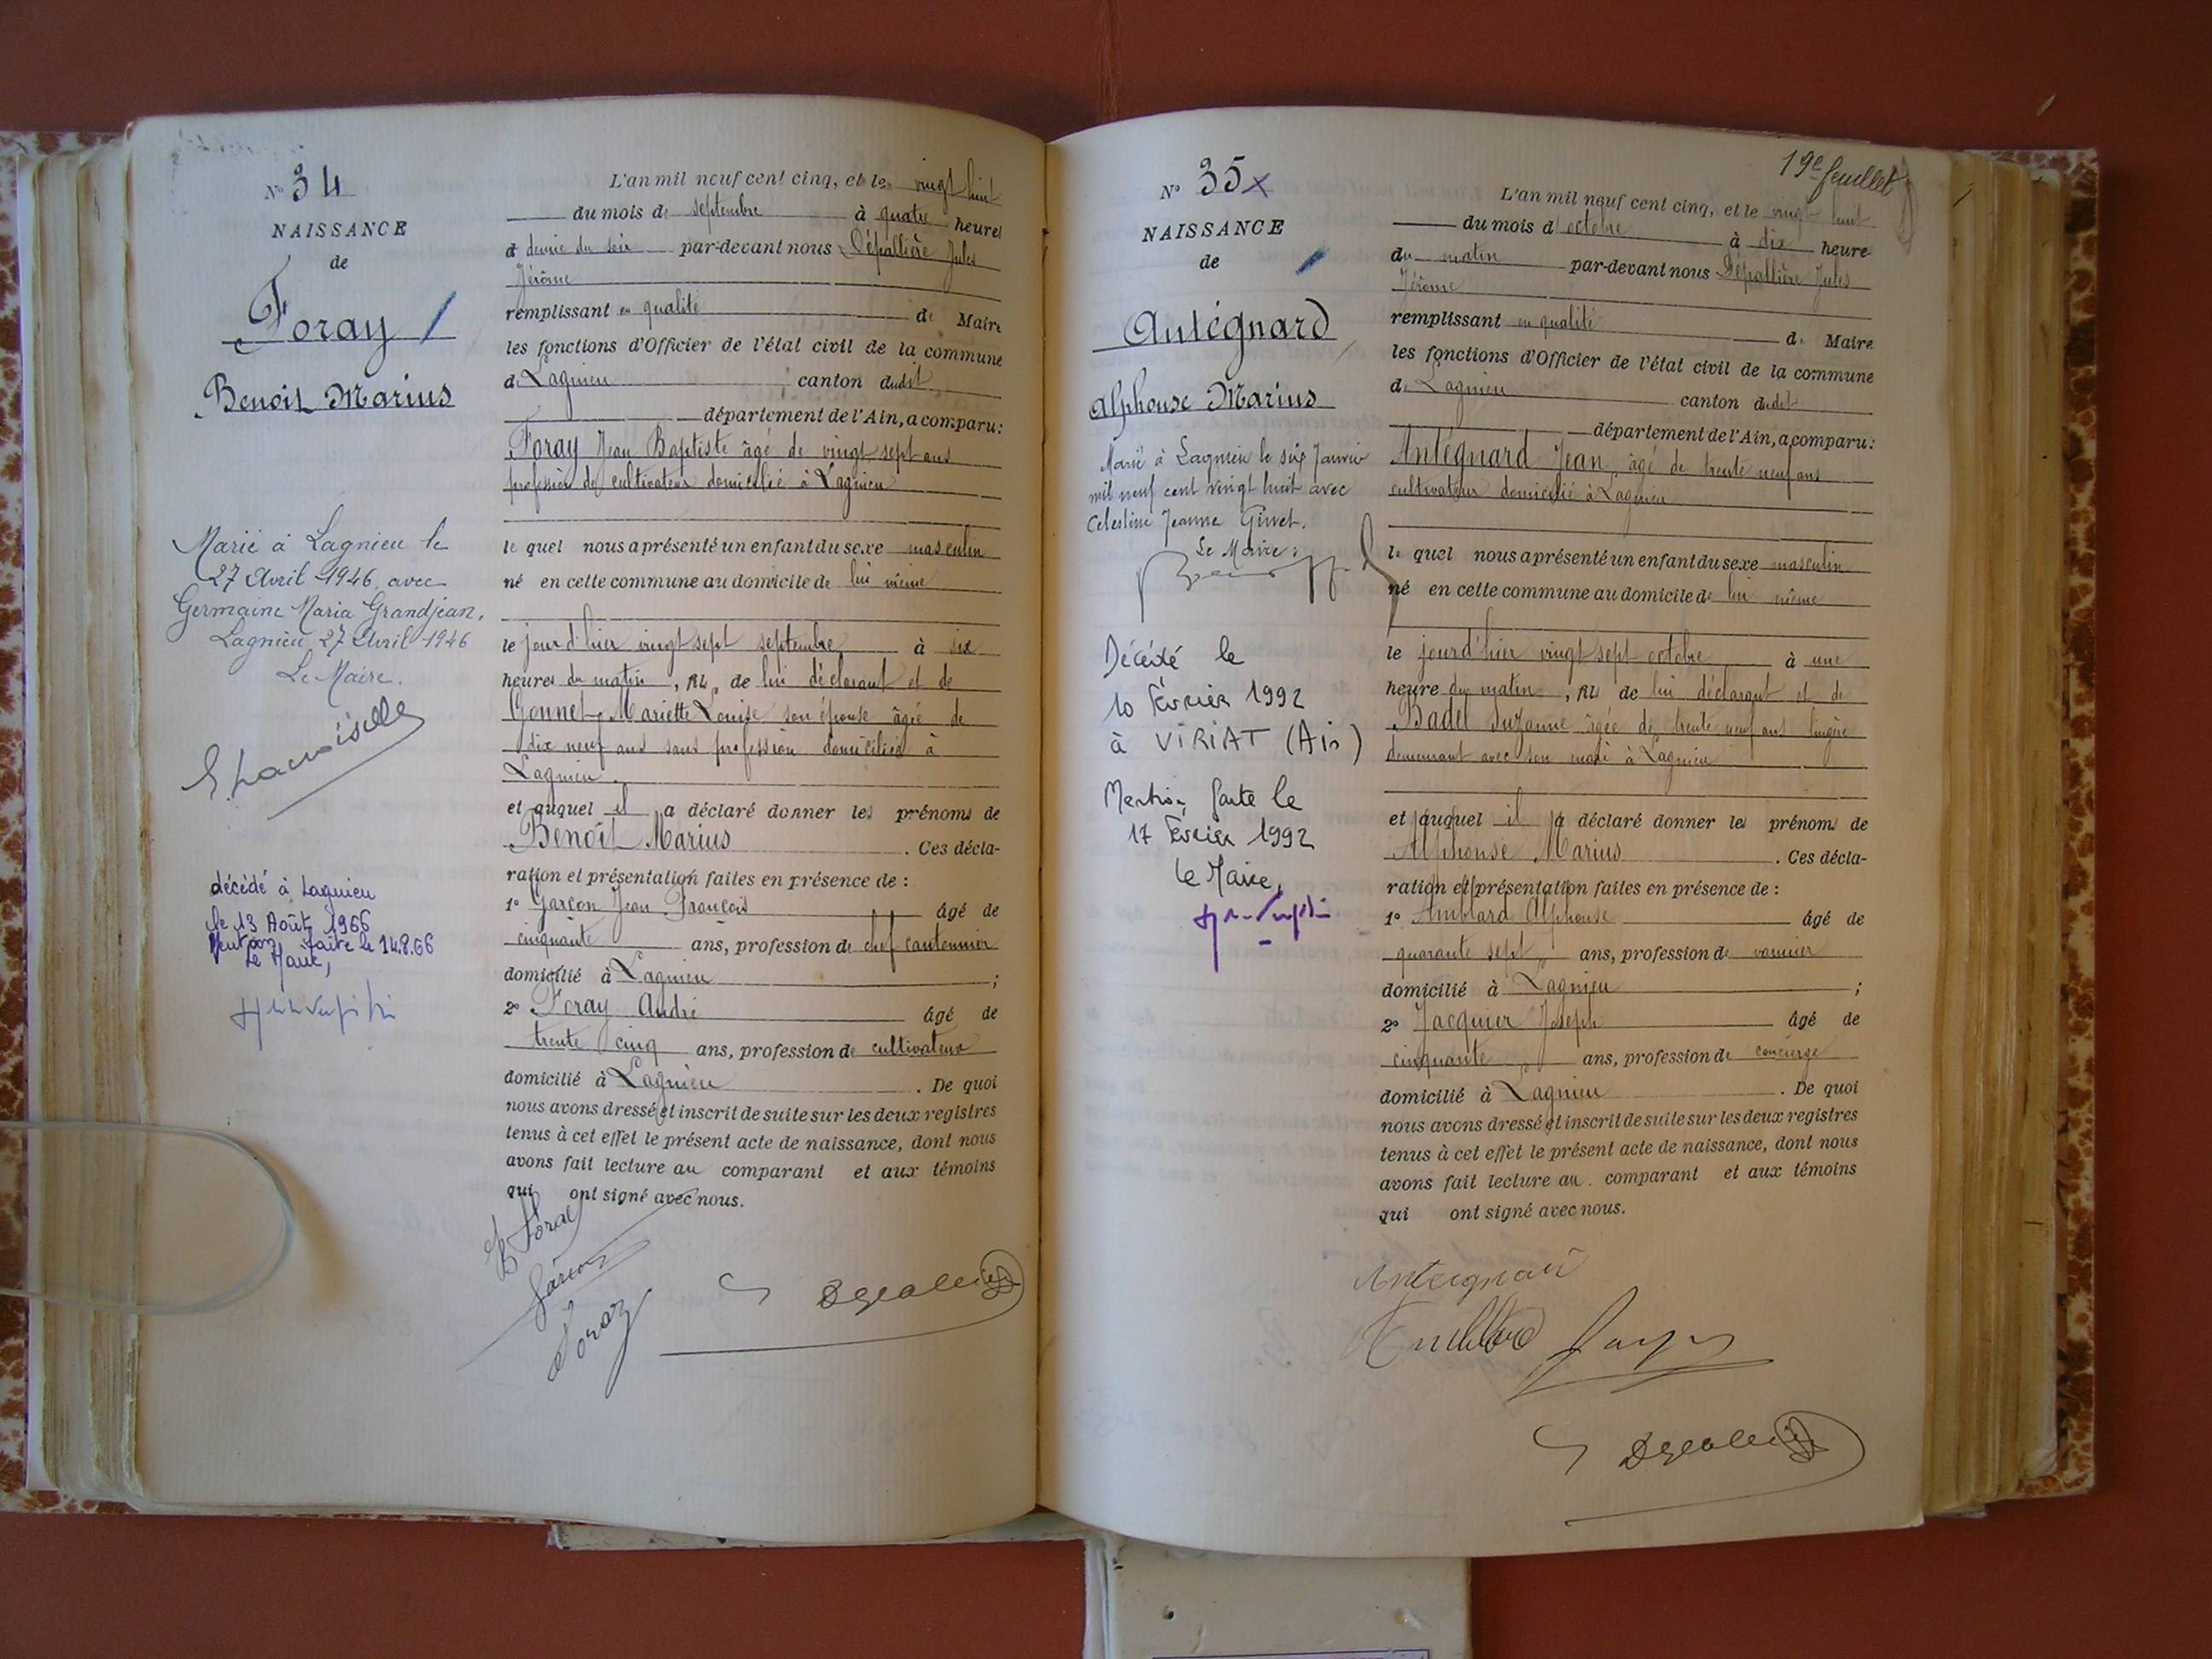 N° 34
NAISSANCE
de
Foray
Benoit Marius
Marié à Lagnieu le
27 Avril 1946 avec
Germaine Maria Grandjean.
Lagnieu, 27 Avril 1946
Le Maire.
décédé à Lagnieu
le 13 Août 1966
Mention faite le 14.8.66
Le Maire,
L'an mil neuf cent cinq, et le vingt huit
du mois de septembre à quatre heures
et demie du soir par-devant nous Dépallière Jules
Jérôme
remplissant en qualité de Maire
les fonctions d'Officier de l'état civil de la commune
de Lagnieu canton dudit
département de l'Ain, a comparu :
Foray Jean Baptiste âgé de vingt sept ans
profession de cultivateur domicilié à Lagnieu
le quel nous a présenté un enfant du sexe masculin
né en cette commune au domicile de lui même
le jour d'hier vingt sept septembre à six
heures du matin, fils de lui déclarant et de
Gonnet, Mariette Louise son épouse âgée de
dix neuf ans sans profession domiciliée à
Lagnieu.
et auquel il a déclaré donner les prénoms de
Benoît Marius . Ces décla-
ration et présentation faites en présence de :
1° Garçon Jean François âgé de
cinquante ans, profession de chef cantonnier
domicilié à Lagnieu ;
2° Foray André âgé de
trente cinq ans, profession de cultivateur
domicilié à Lagnieu . De quoi
nous avons dressé et inscrit de suite sur les deux registres
tenus à cet effet le présent acte de naissance, dont nous
avons fait lecture au comparant et aux témoins
qui ont signé avec nous.
Foray
Garçon
Foray
19e feuillet
N° 35
NAISSANCE
de
Antégnard
Alphonse Marius
Marié à Lagnieu le six Janvier
mil neuf cent vingt huit avec
Celestine Jeanne Girvet.
Le Maire :
Décédé le
10 Février 1992
à VIRIAT (Ain)
Mention faite le
17 Février 1992
Le Maire,
L'an mil neuf cent cinq, et le vingt huit
du mois d'octobre à dix heure
du matin par-devant nous Dépallière Jules
Jérôme
remplissant en qualité de Maire
les fonctions d'Officier de l'état civil de la commune
de Lagnieu canton dudit
département de l'Ain, a comparu :
Antégnard Jean, âgé de trente neuf ans
cultivateur domicilié à Lagnieu
le quel nous a présenté un enfant du sexe masculin
né en cette commune au domicile de lui même
le jourd'hier vingt sept octobre à une
heure du matin, fils de lui déclarant et de
Badel Suzanne âgée de trente neuf ans lingère
demeurant avec son mari à Lagnieu
et auquel il a déclaré donner les prénoms de
Alphonse Marius . Ces décla-
ration et présentation faites en présence de :
1° Amblard Alphonse âgé de
quarante sept ans, profession de vannier
domicilié à Lagnieu ;
2° Jacquier Joseph âgé de
cinquante ans, profession de concierge
domicilié à Lagnieu . De quoi
nous avons dressé et inscrit de suite sur les deux registres
tenus à cet effet le présent acte de naissance, dont nous
avons fait lecture au comparant et aux témoins
qui ont signé avec nous.